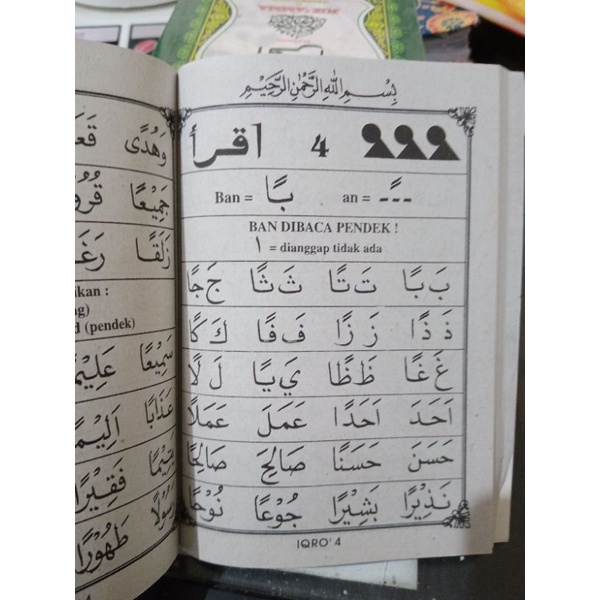 بِسْمِ اللّٰهِ الرَّحْمٰنِ الرَّحِيْمِ
اقرأ 4
Ban = بًا an = ـًـ
BAN DIBACA PENDEK !
ا = dianggap tidak ada
بَ بًا تَ تًا ثَ ثًا جَ جًا
ذَ ذًا زَ زًا فَ فًا كَ كًا
غَ غًا ظَ ظًا يَ يًا لَ لًا
اَحَدَ اَحَدًا عَمَلَ عَمَلًا
حَسَنَ حَسَنًا صَالِحَ صَالِحًا
نَذِيْرًا بَشِيْرًا جُوْعًا نُوْحًا
IQRO' 4
وَهُدًى
جَمِيْعًا
زَلَقًا
ikan :
ng)
d (pendek)
سَمِيْعًا
عَذَابًا اَلِيْمًا
يَتِيْمًا فَقِيْرًا
رَسُوْلًا طَهُوْرًا